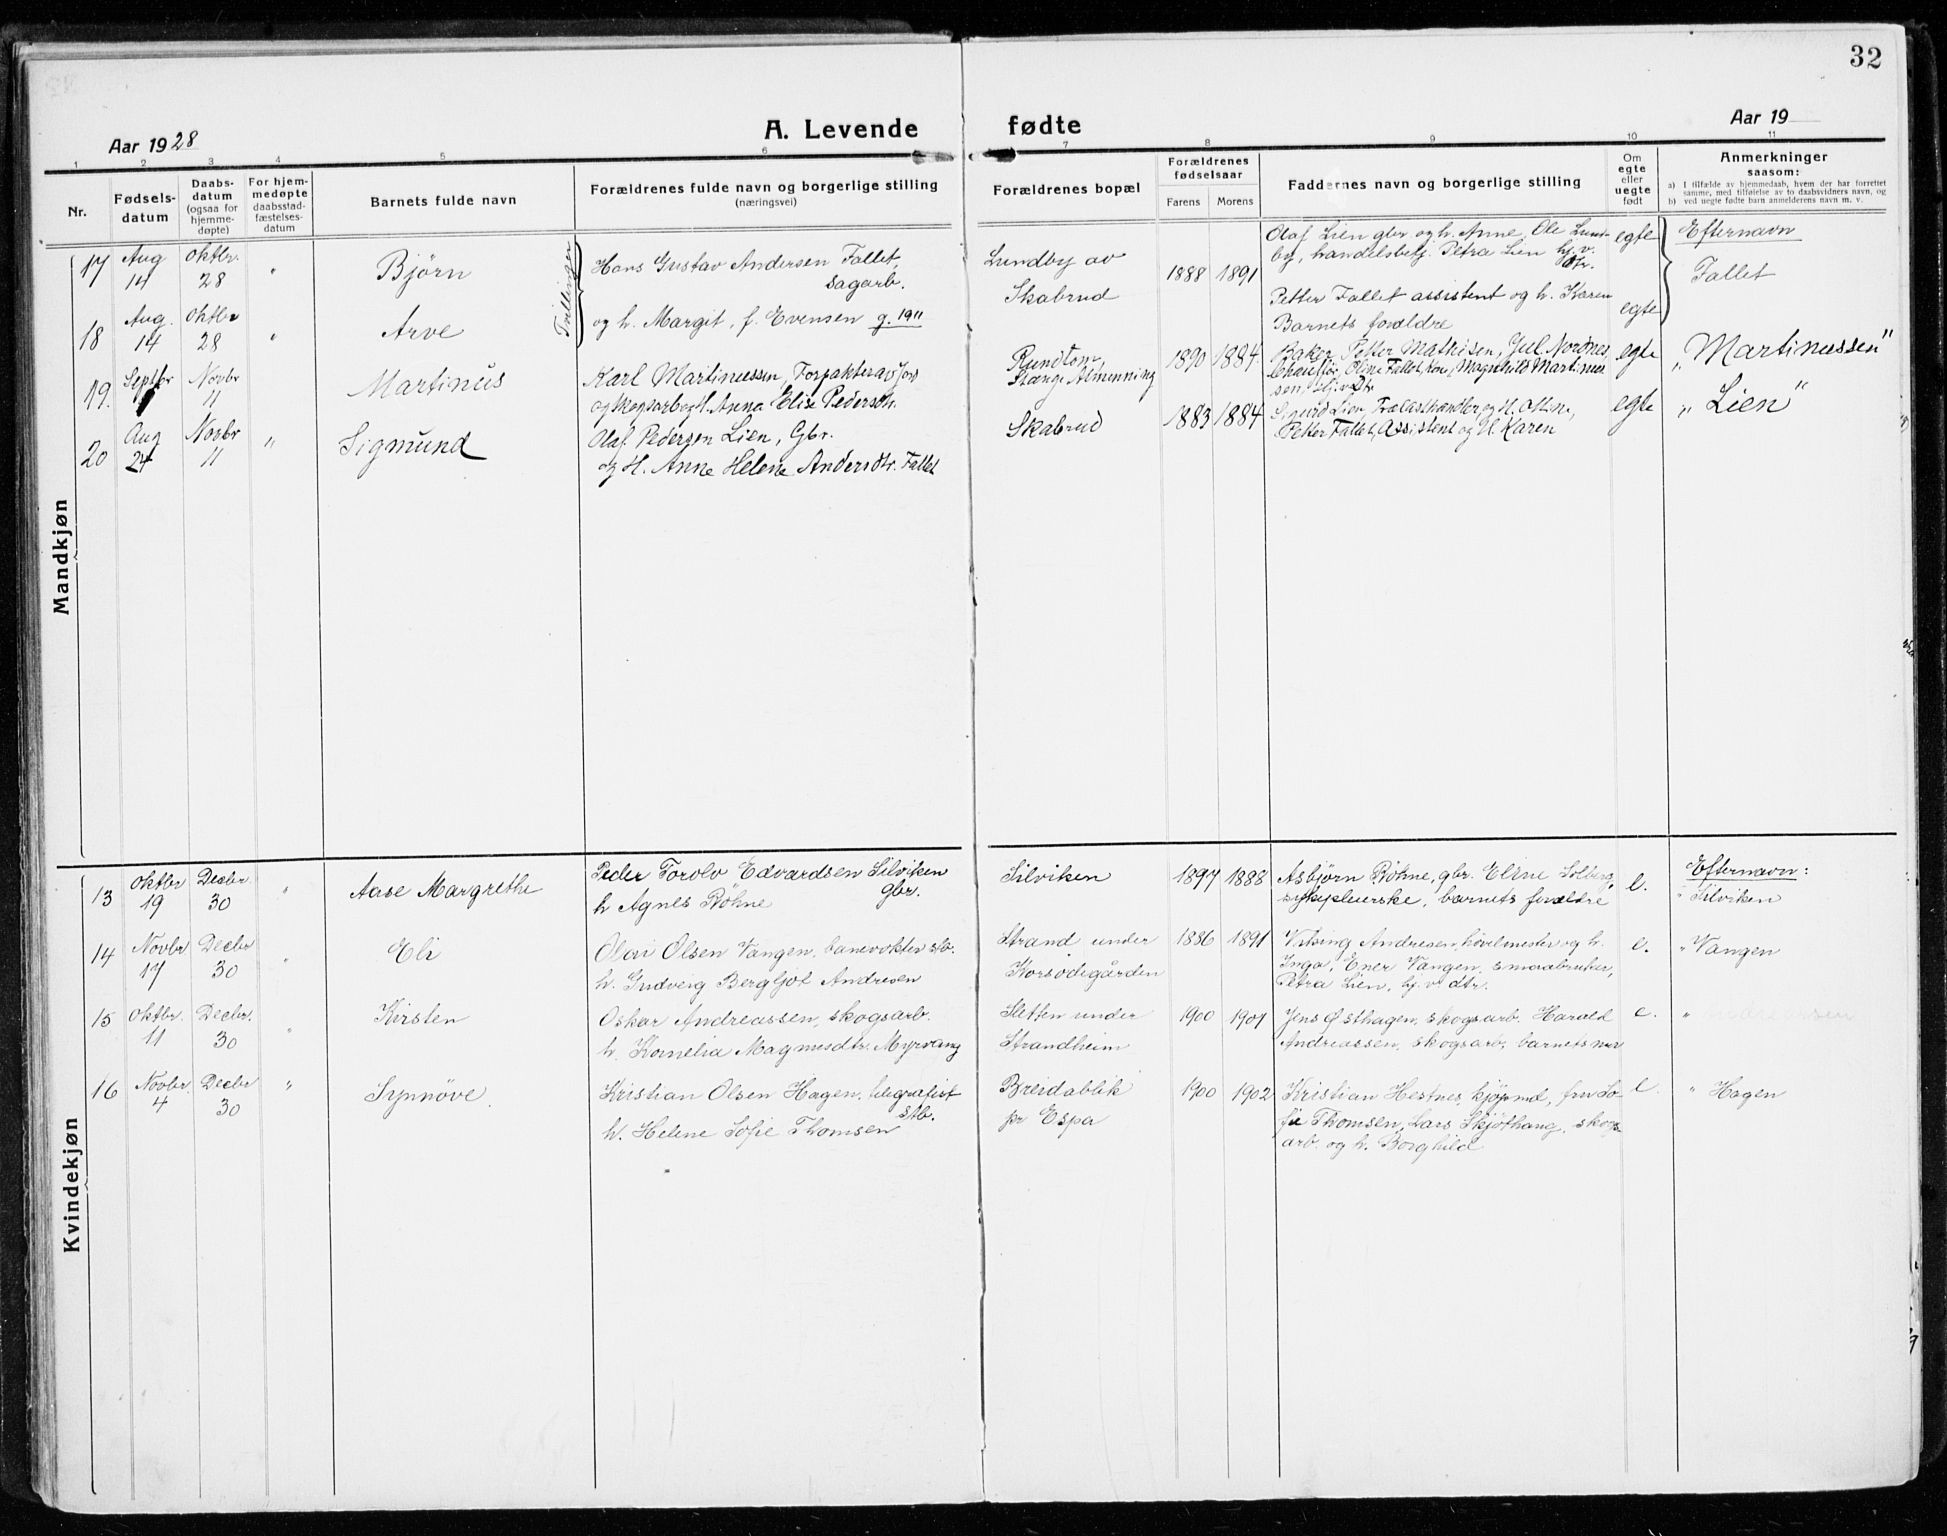 32
Aar 1928
A. Levende
fødte
Aar 19
1 2 3 4 5 6 7 8 9 10 11
Nr.
Fødsels-
datum
Daabs-
datum
(ogsaa for
hjemme-
døpte)
For hjem-
medøpte
daabsstad-
fæstelses-
datum
Barnets fulde navn
Forældrenes fulde navn og borgerlige stilling
(næringsvei)
Forældrenes bopæl
Forældrenes
fødselsaar
Farens Morens
Faddernes navn og borgerlige stilling
Om
egte
eller
uegte
født
Anmerkninger
saasom:
a) I tilfælde av hjemmedaab, hvem der har forrettet
samme, med tilføielse av to daabsvidners navn, og
b) ved uegte fødte barn anmelderens navn m. v.
Mandkjøn
17 Aug 14 Oktbr. 28 " Bjørn
Tvillinger
Hans Gustav Andersen Fallet,
sagarb.
og h. Margit, f. Evensen g. 1911
Lundby av
Skabrud
1888 1891
Olaf Lien gbr og h. Anne, Ole Lund-
by, handelsbetj. Petra Lien hj.v.
dtr.
egte
Efternavn
Fallet
18 Aug. 14 Oktbr 28 " Arve
Petter Fallet assistent og h. Karen
Barnets forældre
egte
19. Septbr Novbr 11 Martinus
Karl Martinussen, Forpakter av jord
og skogsarb og H. Anna Elise Pedersen.
Rundtom,
Stange Almenning
1890 1884
Baker Petter Mathisen, Jul. Nordnes,
Chauffør, Oline Fallet, Kone, Magnhild Martinus
sen, hj.v. Dtr
egte
"Martinussen"
20 Aug 24 Novbr 11 " Sigmund
Olaf Pedersen Lien, Gbr.
og H. Anne Helene Andersdtr. Fallet
Skabrud
1883 1884
Sigurd Lien, Trælasthandler, og H. Othine,
Petter Fallet, Assistent og H. Karen
egte
"Lien"
Kvindekjøn
13 Oktbr 19 Decbr. 30 " Aase Margrethe
Peder Torolv Edvardsen Silviken
gbr.
h Agnes Bøhne
Silviken
1897 1888
Asbjørn Bøhne, gbr. Eline Solberg,
sykepleierske, barnets forældre
e.
Efternavn:
" Silviken
14 Novbr 17 Decbr 30 " Eli
Olav Olsen Vangen, banevokter stb.
h. Gudveig Bergljot Andresen
Strand under
Korsødegården
1886 1891
Andresen, høvelmester og h.
Inga, Ener Vangen, smaabruker,
Petra Lien, hj.v. dtr.
e.
" Vangen
15 Oktbr. 11 Decbr. 30 " Kirsten
Oskar Andreassen, skogsarb.
h. Kornelia Magnusdtr. Myrvang
Sletten under
Strandheim
1900 1901
Jens Østhagen, skogsarb. Harald
Andreassen, skogsarb, barnets mor
e.
"
16 Novbr. 4 Decbr 30 " Synnøve
Kristian Olsen Hagen, telegrafist
stb.
h. Helene Sofie Thomsen
Breidablik
pr Espa
1900 1902
Kristian Hestnes, kjøpmd, fru So-
fie Thomsen, Lars Skjøthaug, skogs-
arb. og h. Borghild
e.
" Hagen